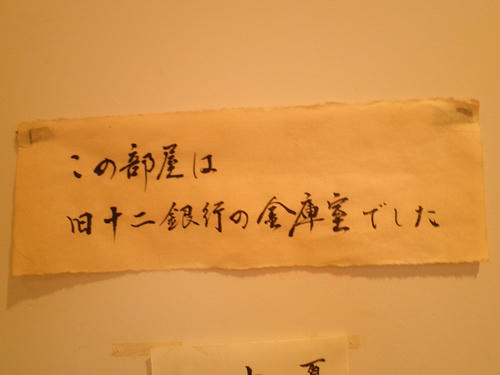 この部屋は
旧十二銀行の金庫室でした
夏